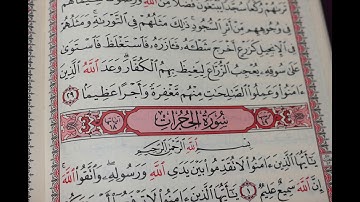 تَرَىٰهُمْ رُكَّعًا سُجَّدًا يَبْتَغُونَ فَضْلًا مِّنَ ٱللَّهِ وَرِضْوَٰنًا سِيمَاهُمْ
فِى وُجُوهِهِم مِّنْ أَثَرِ ٱلسُّجُودِ ذَٰلِكَ مَثَلُهُمْ فِى ٱلتَّوْرَىٰةِ وَمَثَلُهُمْ
فِى ٱلْإِنجِيلِ كَزَرْعٍ أَخْرَجَ شَطْـَٔهُۥ فَـَٔازَرَهُۥ فَٱسْتَغْلَظَ فَٱسْتَوَىٰ
عَلَىٰ سُوقِهِۦ يُعْجِبُ ٱلزُّرَّاعَ لِيَغِيظَ بِهِمُ ٱلْكُفَّارَ وَعَدَ ٱللَّهُ ٱلَّذِينَ
ءَامَنُوا۟ وَعَمِلُوا۟ ٱلصَّٰلِحَٰتِ مِنْهُم مَّغْفِرَةً وَأَجْرًا عَظِيمًۢا ٢٩
سُورَةُ الحُجُرَاتِ
بِسْمِ ٱللَّهِ ٱلرَّحْمَٰنِ ٱلرَّحِيمِ
يَٰٓأَيُّهَا ٱلَّذِينَ ءَامَنُوا۟ لَا تُقَدِّمُوا۟ بَيْنَ يَدَىِ ٱللَّهِ وَرَسُولِهِۦ وَٱتَّقُوا۟ ٱللَّهَ
إِنَّ ٱللَّهَ سَمِيعٌ عَلِيمٌ ١ يَٰٓأَيُّهَا ٱلَّذِينَ ءَامَنُوا۟ لَا تَرْفَعُوٓا۟